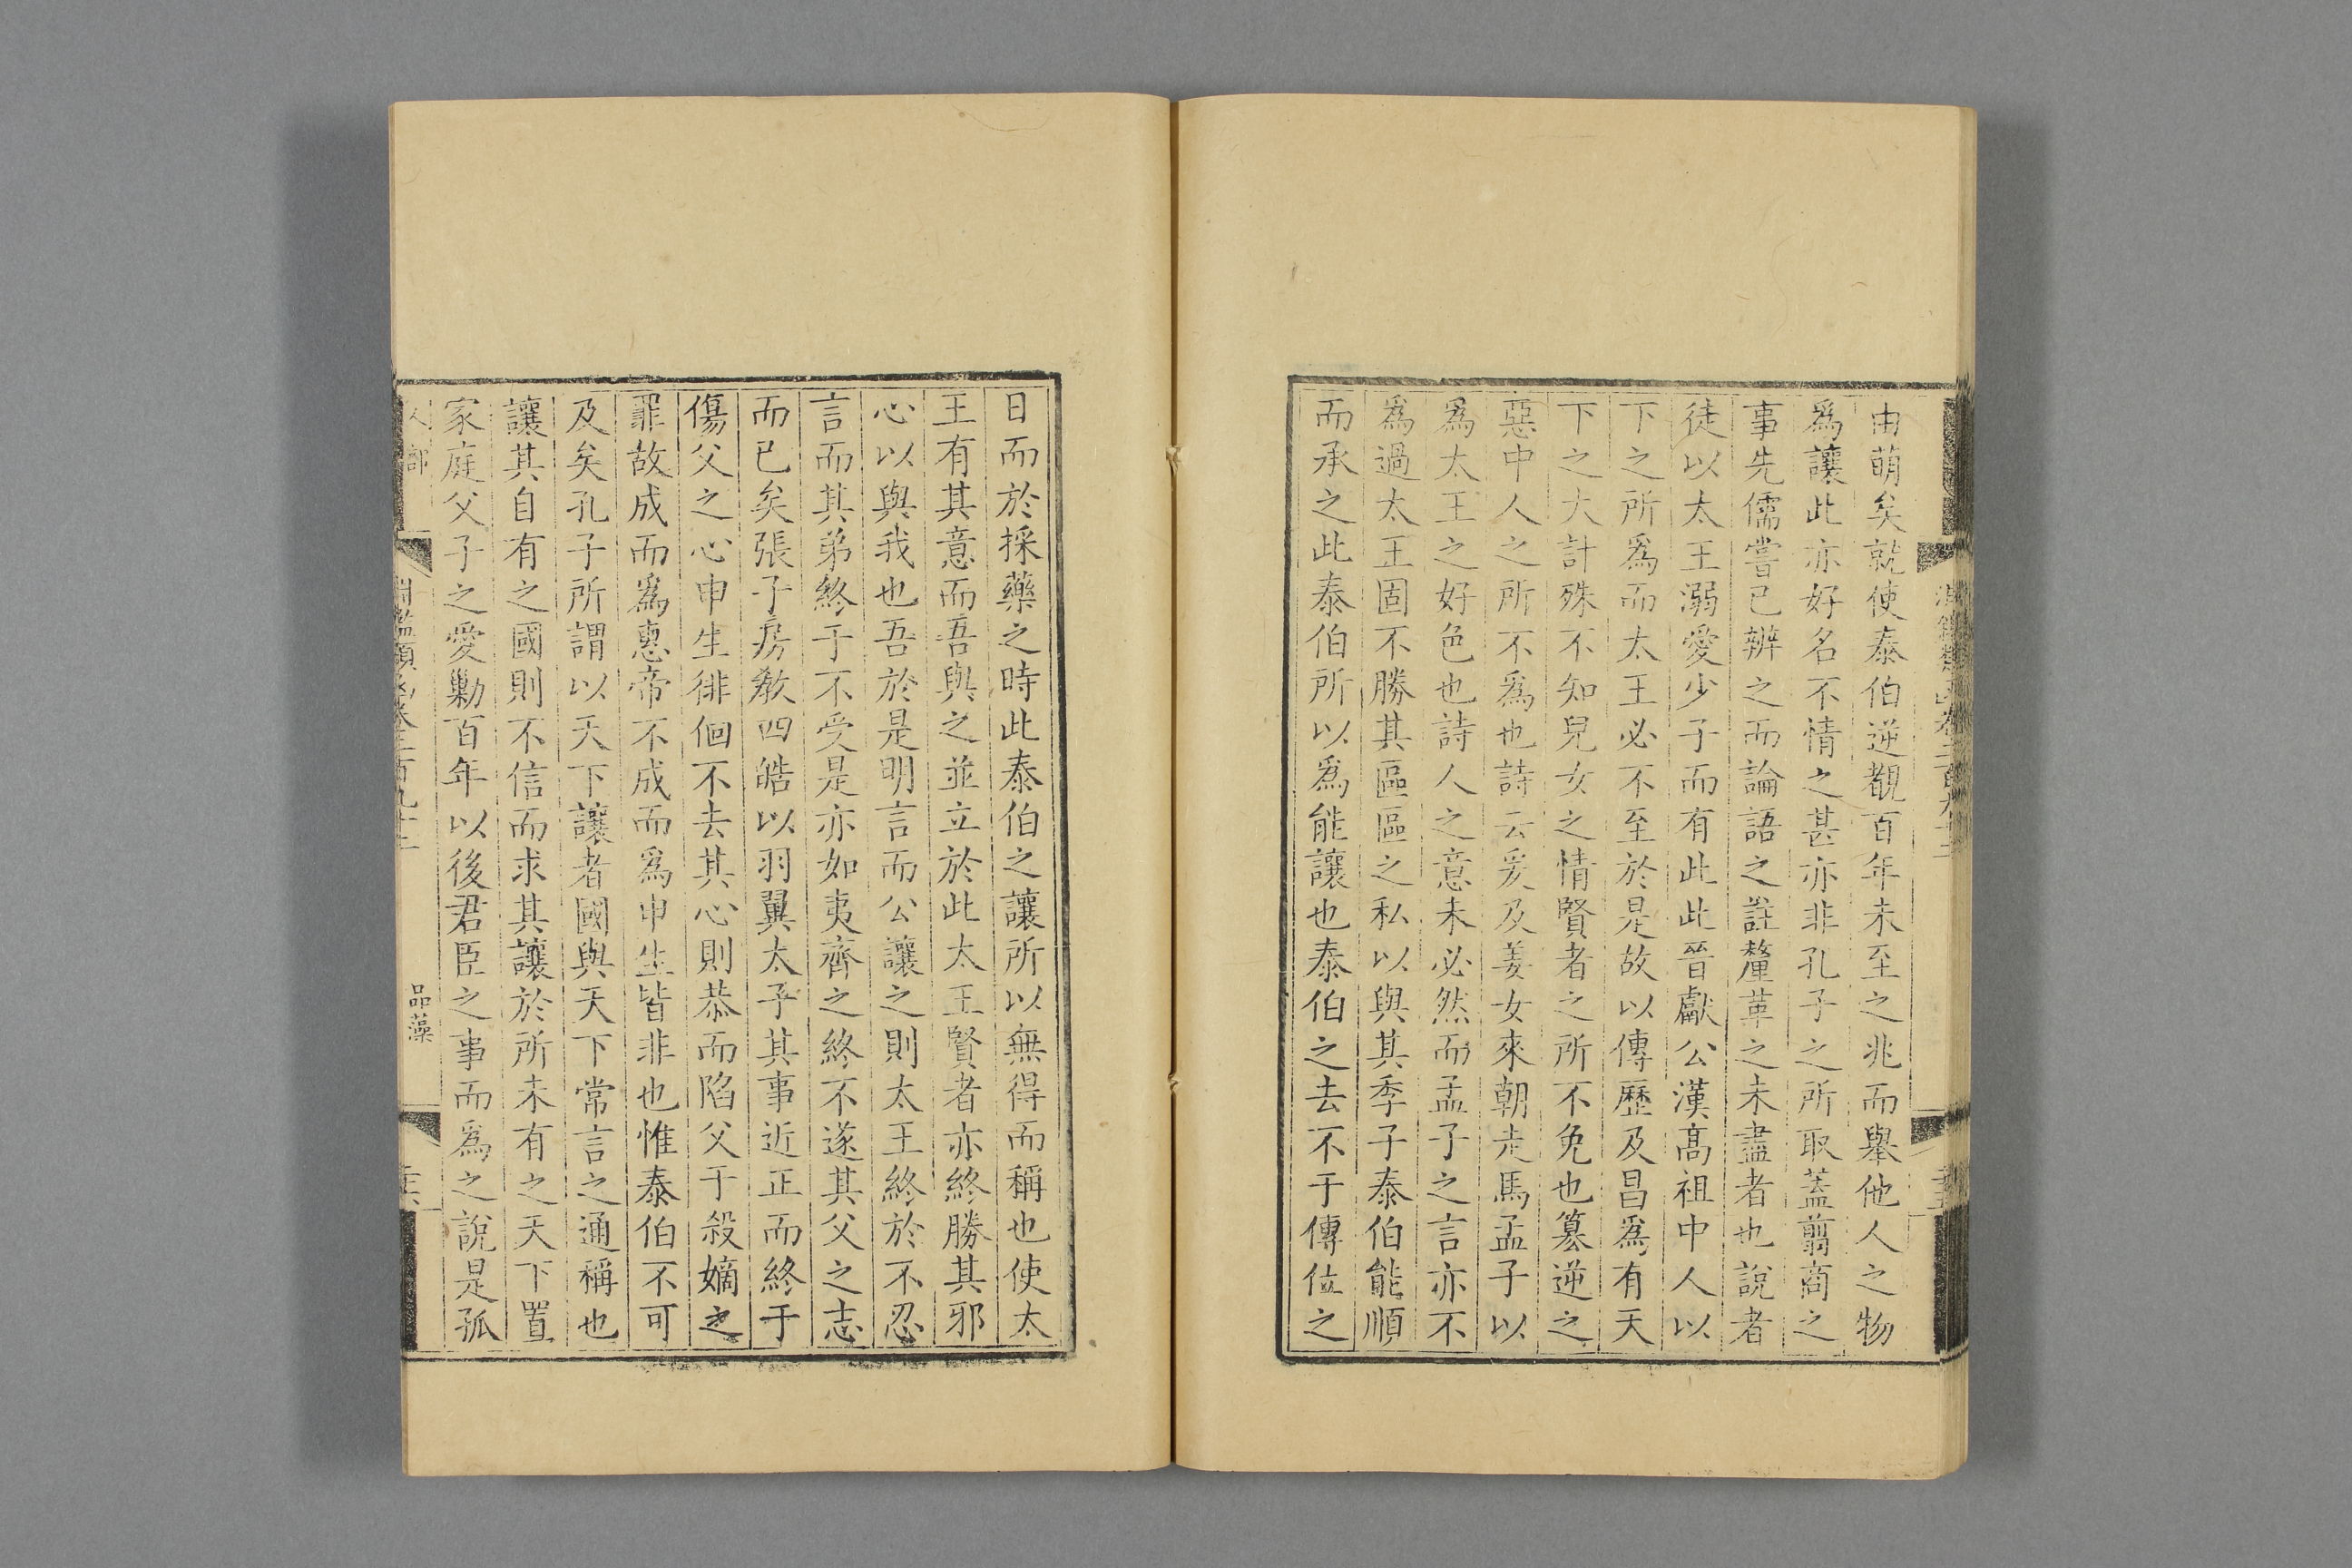 由萌矣就使泰伯逆覩百年未至之兆而舉他人之物
爲讓此亦好名不情之甚亦非孔子之所取蓋翦商之
事先儒嘗已辨之而論語之註釐革之未盡者也說者
徒以太王溺愛少子而有此此晉獻公漢高祖中人以
下之所爲而太王必不至於是故以傳歷及昌爲有天
下之大計殊不知兒女之情賢者之所不免也篡逆之
惡中人之所不爲也詩云爰及姜女來朝走馬孟子以
爲太王之好色也詩人之意未必然而孟子之言亦不
爲過太王固不勝其區區之私以與其季子泰伯能順
而承之此泰伯所以爲能讓也泰伯之去不于傳位之
日而於採藥之時此泰伯之讓所以無得而稱也使太
王有其意而吾與之並立於此太王賢者亦終勝其邪
心以與我也吾於是明言而公讓之則太王終於不忍
言而其弟終于不受是亦如夷齊之終不遂其父之志
而已矣張子房教四皓以羽翼太子其事近正而終于
傷父之心申生徘徊不去其心則恭而陷父于殺嫡之
罪故成而爲惠帝不成而爲申生皆非也惟泰伯不可
及矣孔子所謂以天下讓者國與天下常言之通稱也
讓其自有之國則不信而求其讓於所未有之天下置
家庭父子之愛勦百年以後君臣之事而爲之說是孤
品藻